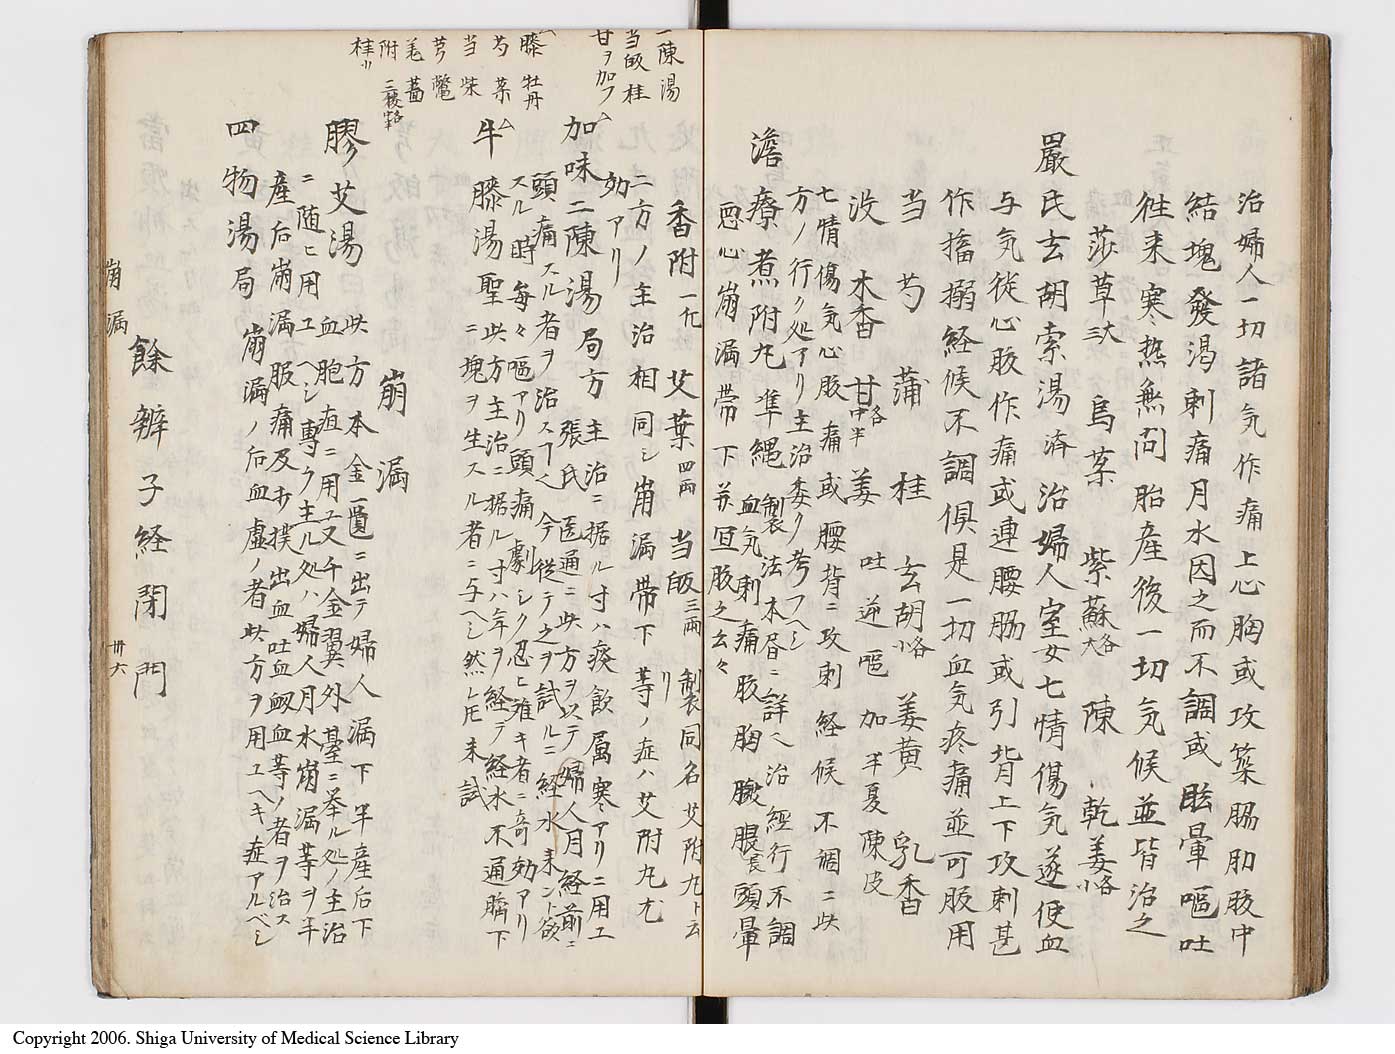 治婦人一切諸気作痛上心胸或攻築脇肋腹中
結塊發渇刺痛月水因之而不調或眩暈嘔吐
往来寒熱無問胎産後一切気候並皆治之
莎草三大 烏薬 紫蘇各大 陳 乾姜各小
嚴氏玄胡索湯済 治婦人室女七情傷気遂使血
与気従心腹作痛或連腰脇或引背上下攻刺甚
作搐搦経候不調倶是一切血気疼痛並可服用
当 芍 蒲 桂 玄胡各小 姜黄 乳香
没 木香 甘各中半 姜 吐逆嘔加半夏陳皮
七情傷気心腹痛或腰背ニ攻刺経候不調ニ此
方ノ行ク処アリ主治委ク考フヘシ
澹療煮附丸準縄 製法本層ニ詳ヘ治経行不調
血気刺痛腹胸膨脹頭暈
悪心崩漏帯下並宜服之云々
香附一斤 艾葉四両 当皈三両 製同名艾附丸ト云
リ
二方ノ主治相同シ崩漏帯下等ノ症ハ艾附丸尤
効アリ
二陳湯
当皈桂
甘ヲ加フ
加味二陳湯局方 主治ニ据ル寸ハ痰飲属寒アリニ用ユ
張氏医通ニ此方ヲ以テ婦人月経前ニ
頭痛スル者ヲ治スト今従テ之ヲ試ルニ経水来ント欲
スル時毎々嘔アリ頭痛劇シク忍ヒ難キ者ニ奇効アリ
膝 牡丹
芍 薬
当 柴
芎 鼈
羌 薑
附 三稜各中半
桂小
牛膝湯聖 此方主治ニ据ル寸ハ年ヲ経テ経水不通臍下
ニ塊ヲ生スル者ニ与ヘシ然レ𪜈未試
崩漏
膠艾湯 此方本金匱ニ出テ婦人漏下半産后下
血胞疽ニ用ユ又千金翼外䑓ニ挙ル処ノ主治
ニ随ヒ用ユヘシ專ク主ル処ハ婦人月水崩漏等ヲ半
産后崩漏服痛及打撲出血吐血衂血等ノ者ヲ治ス
四物湯局 崩漏ノ后血虚ノ者此方ヲ用ユヘキ症アルベシ
餘辨子経閉門
崩漏
卅六
Copyright 2006. Shiga University of Medical Science Library